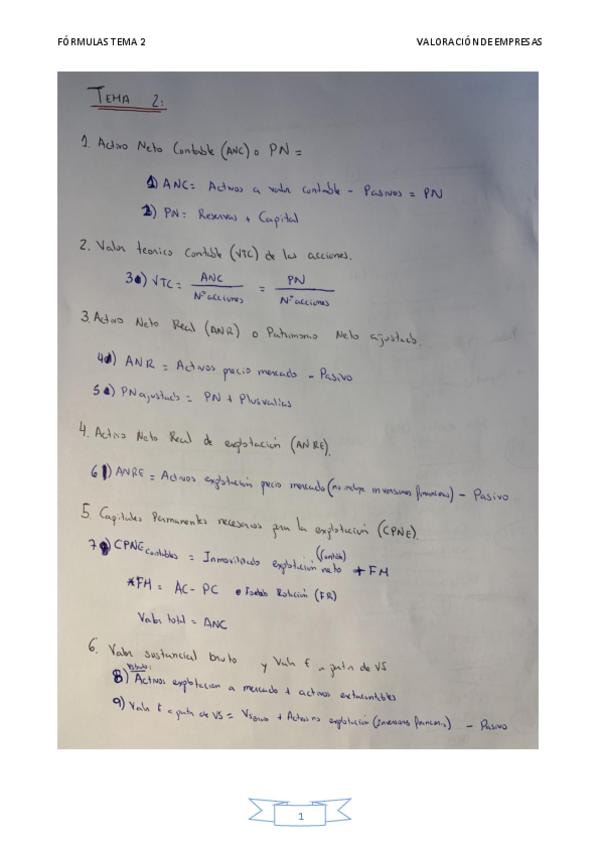 FÓRMULAS TEMA 2 VALORACIÓN DE EMPRESAS
TEMA 2:
1. Activo Neto Contable (ANC) o PN =
1) ANC = Activos a valor contable - Pasivos = PN
2) PN = Reservas + Capital
2. Valor teorico Contable (VTC) de las acciones.
3) VTC = ANC / Nº acciones = PN / Nº acciones
3. Activo Neto Real (ANR) o Patrimonio Neto ajustado.
4) ANR = Activos precio mercado - Pasivo
5) PN ajustado = PN + Plusvalias
4. Activo Neto Real de explotación (ANRE).
6) ANRE = Activos explotación precio mercado (no incluye inversiones financieras) - Pasivo
5. Capitales Permanentes necesarios para la explotación (CPNE).
7) CPNE contables = Inmovilizado explotación neto (contable) + FM
*FM = AC - PC o Fondo Rotación (FR)
Valor total = ANC
6. Valor sustancial bruto y Valor E a partir de VS
8) VS bruto: Activos explotacion a mercado + activos extracontables
9) Valor E a partir de VS = VS bruto + Activos no explotación (inversiones financieras) - Pasivo
1